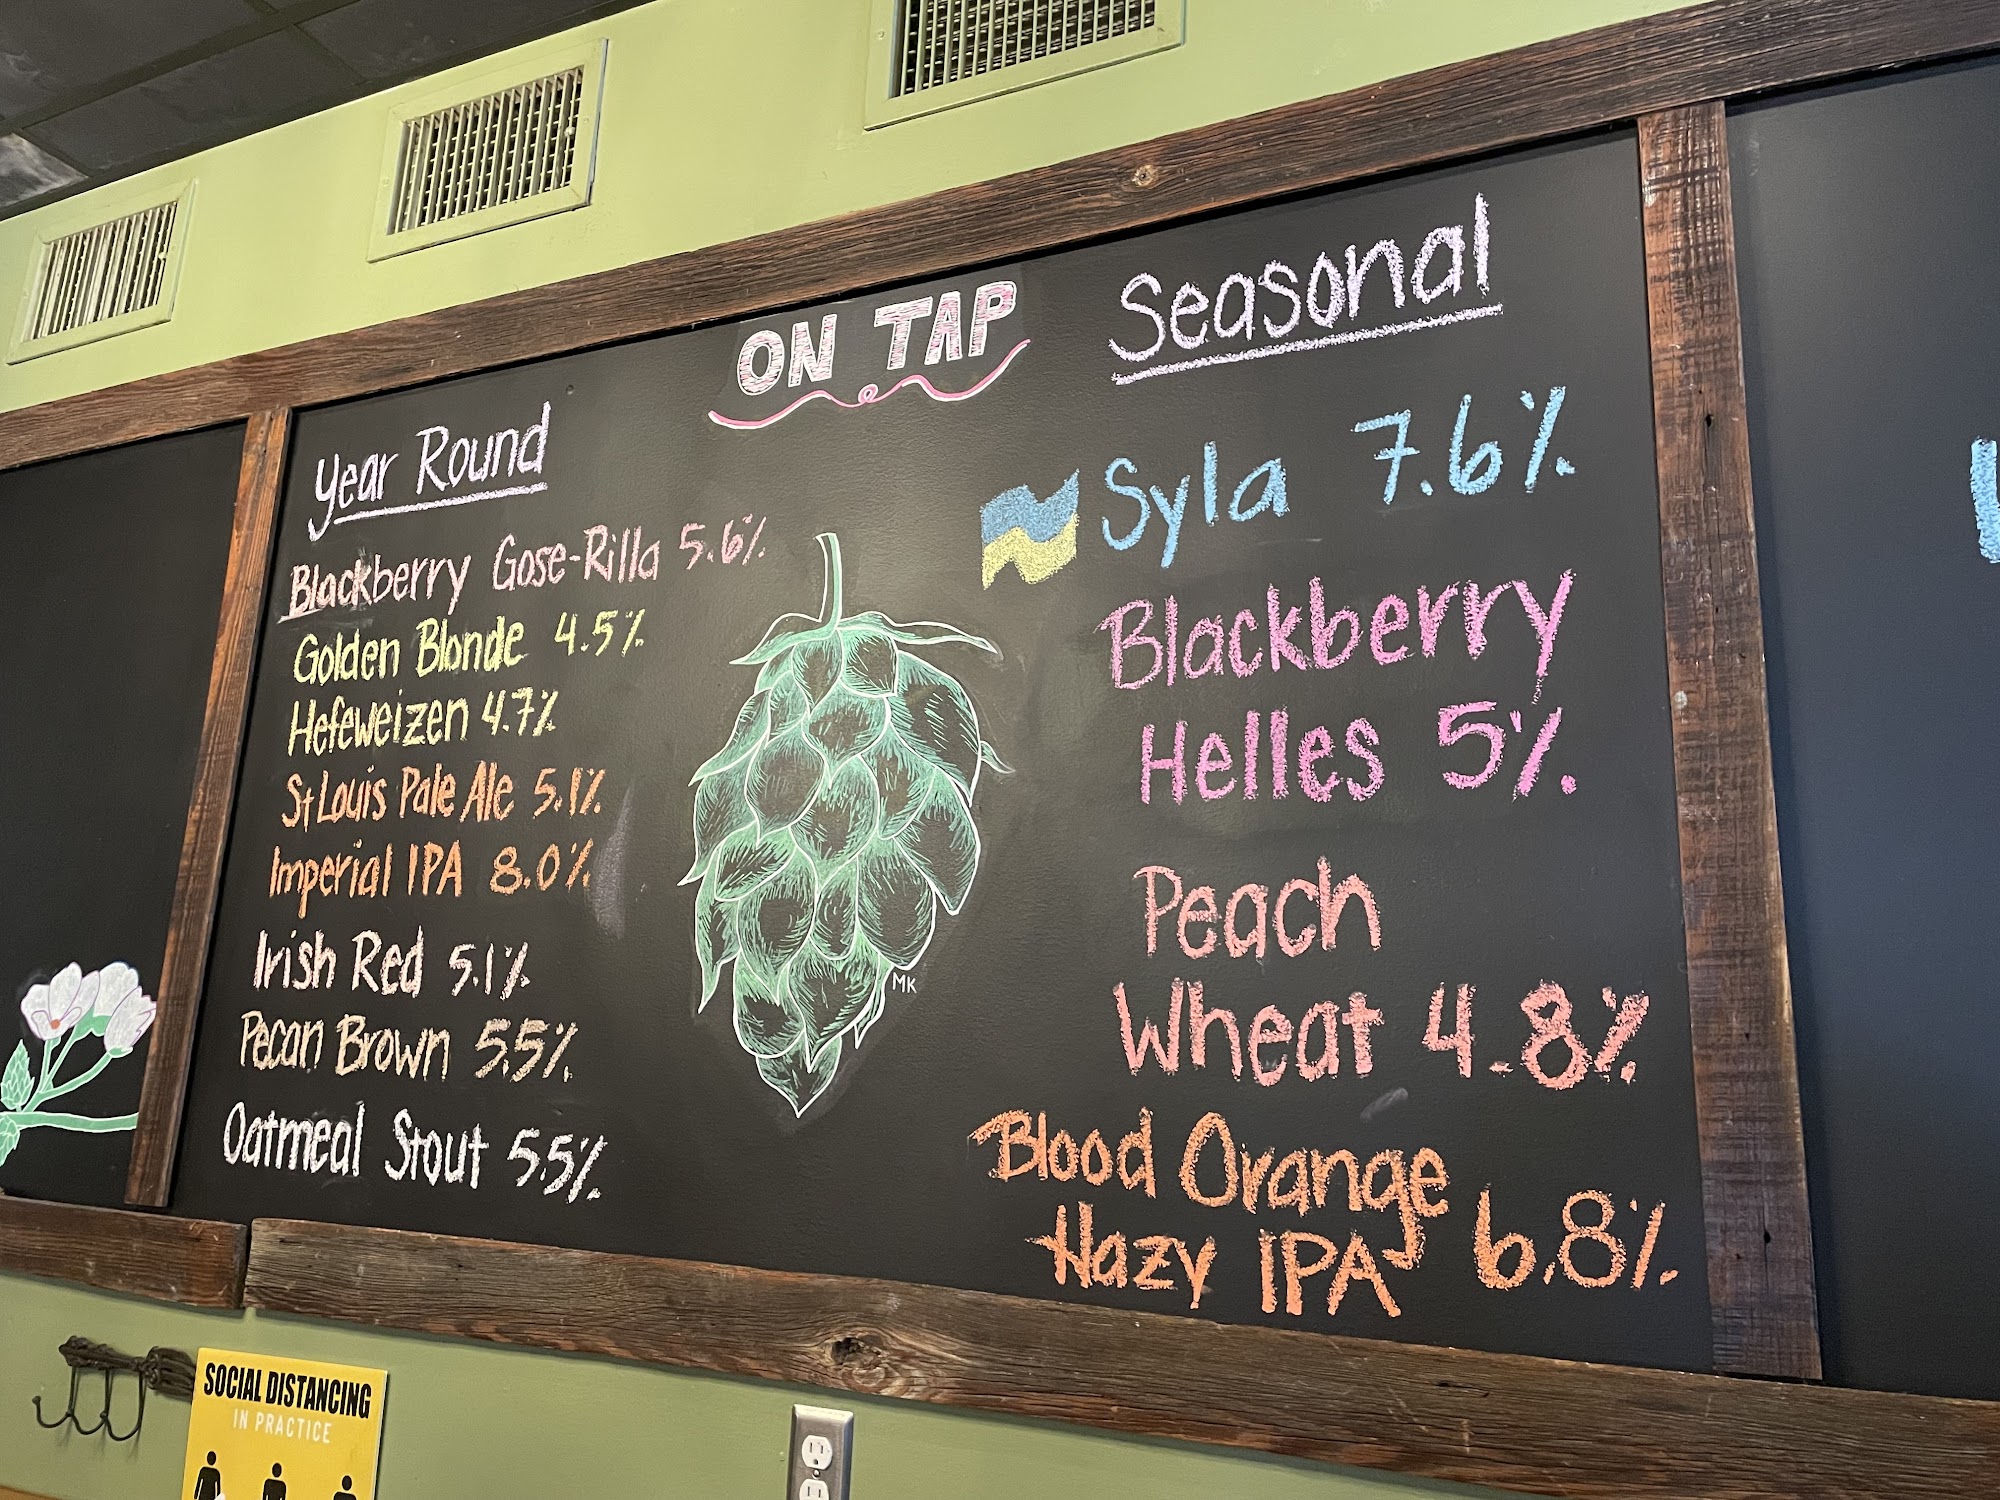 ON TAP
Year Round
Blackberry Gose-Rilla 5.6%
Golden Blonde 4.5%
Hefeweizen 4.7%
St Louis Pale Ale 5.1%
Imperial IPA 8.0%
Irish Red 5.1%
Pecan Brown 5.5%
Oatmeal Stout 5.5%
MK
Seasonal
Syla 7.6%
Blackberry
Helles 5%
Peach
Wheat 4.8%
Blood Orange
Hazy IPA 6.8%
SOCIAL DISTANCING
IN PRACTICE